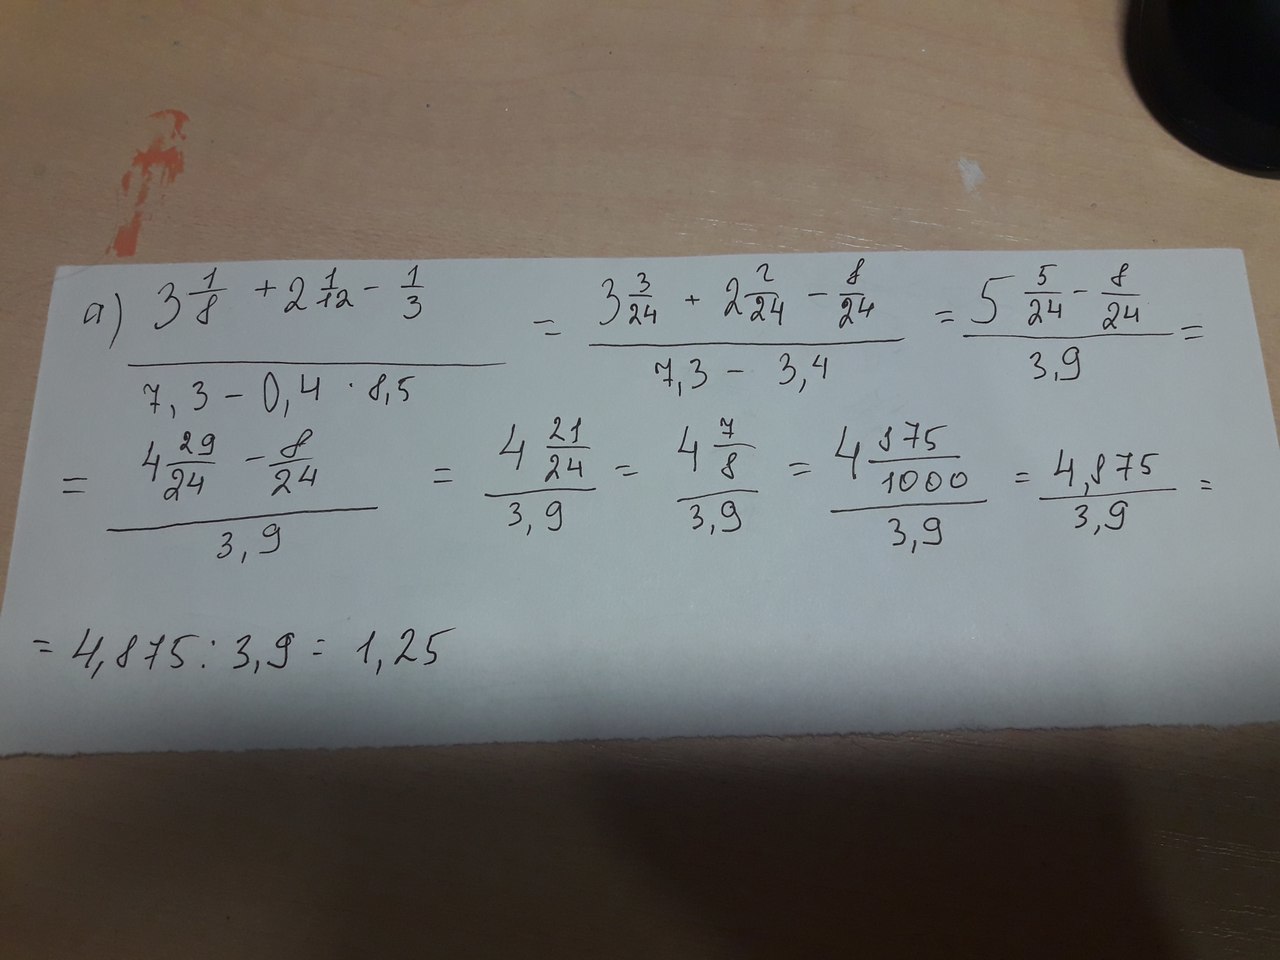 а) (3 1/8 + 2 1/12 - 1/3) / (7,3 - 0,4 · 8,5) = (3 3/24 + 2 2/24 - 8/24) / (7,3 - 3,4) = (5 5/24 - 8/24) / 3,9 =
= (4 29/24 - 8/24) / 3,9 = (4 21/24) / 3,9 = (4 7/8) / 3,9 = (4 875/1000) / 3,9 = 4,875 / 3,9 =
= 4,875 : 3,9 = 1,25